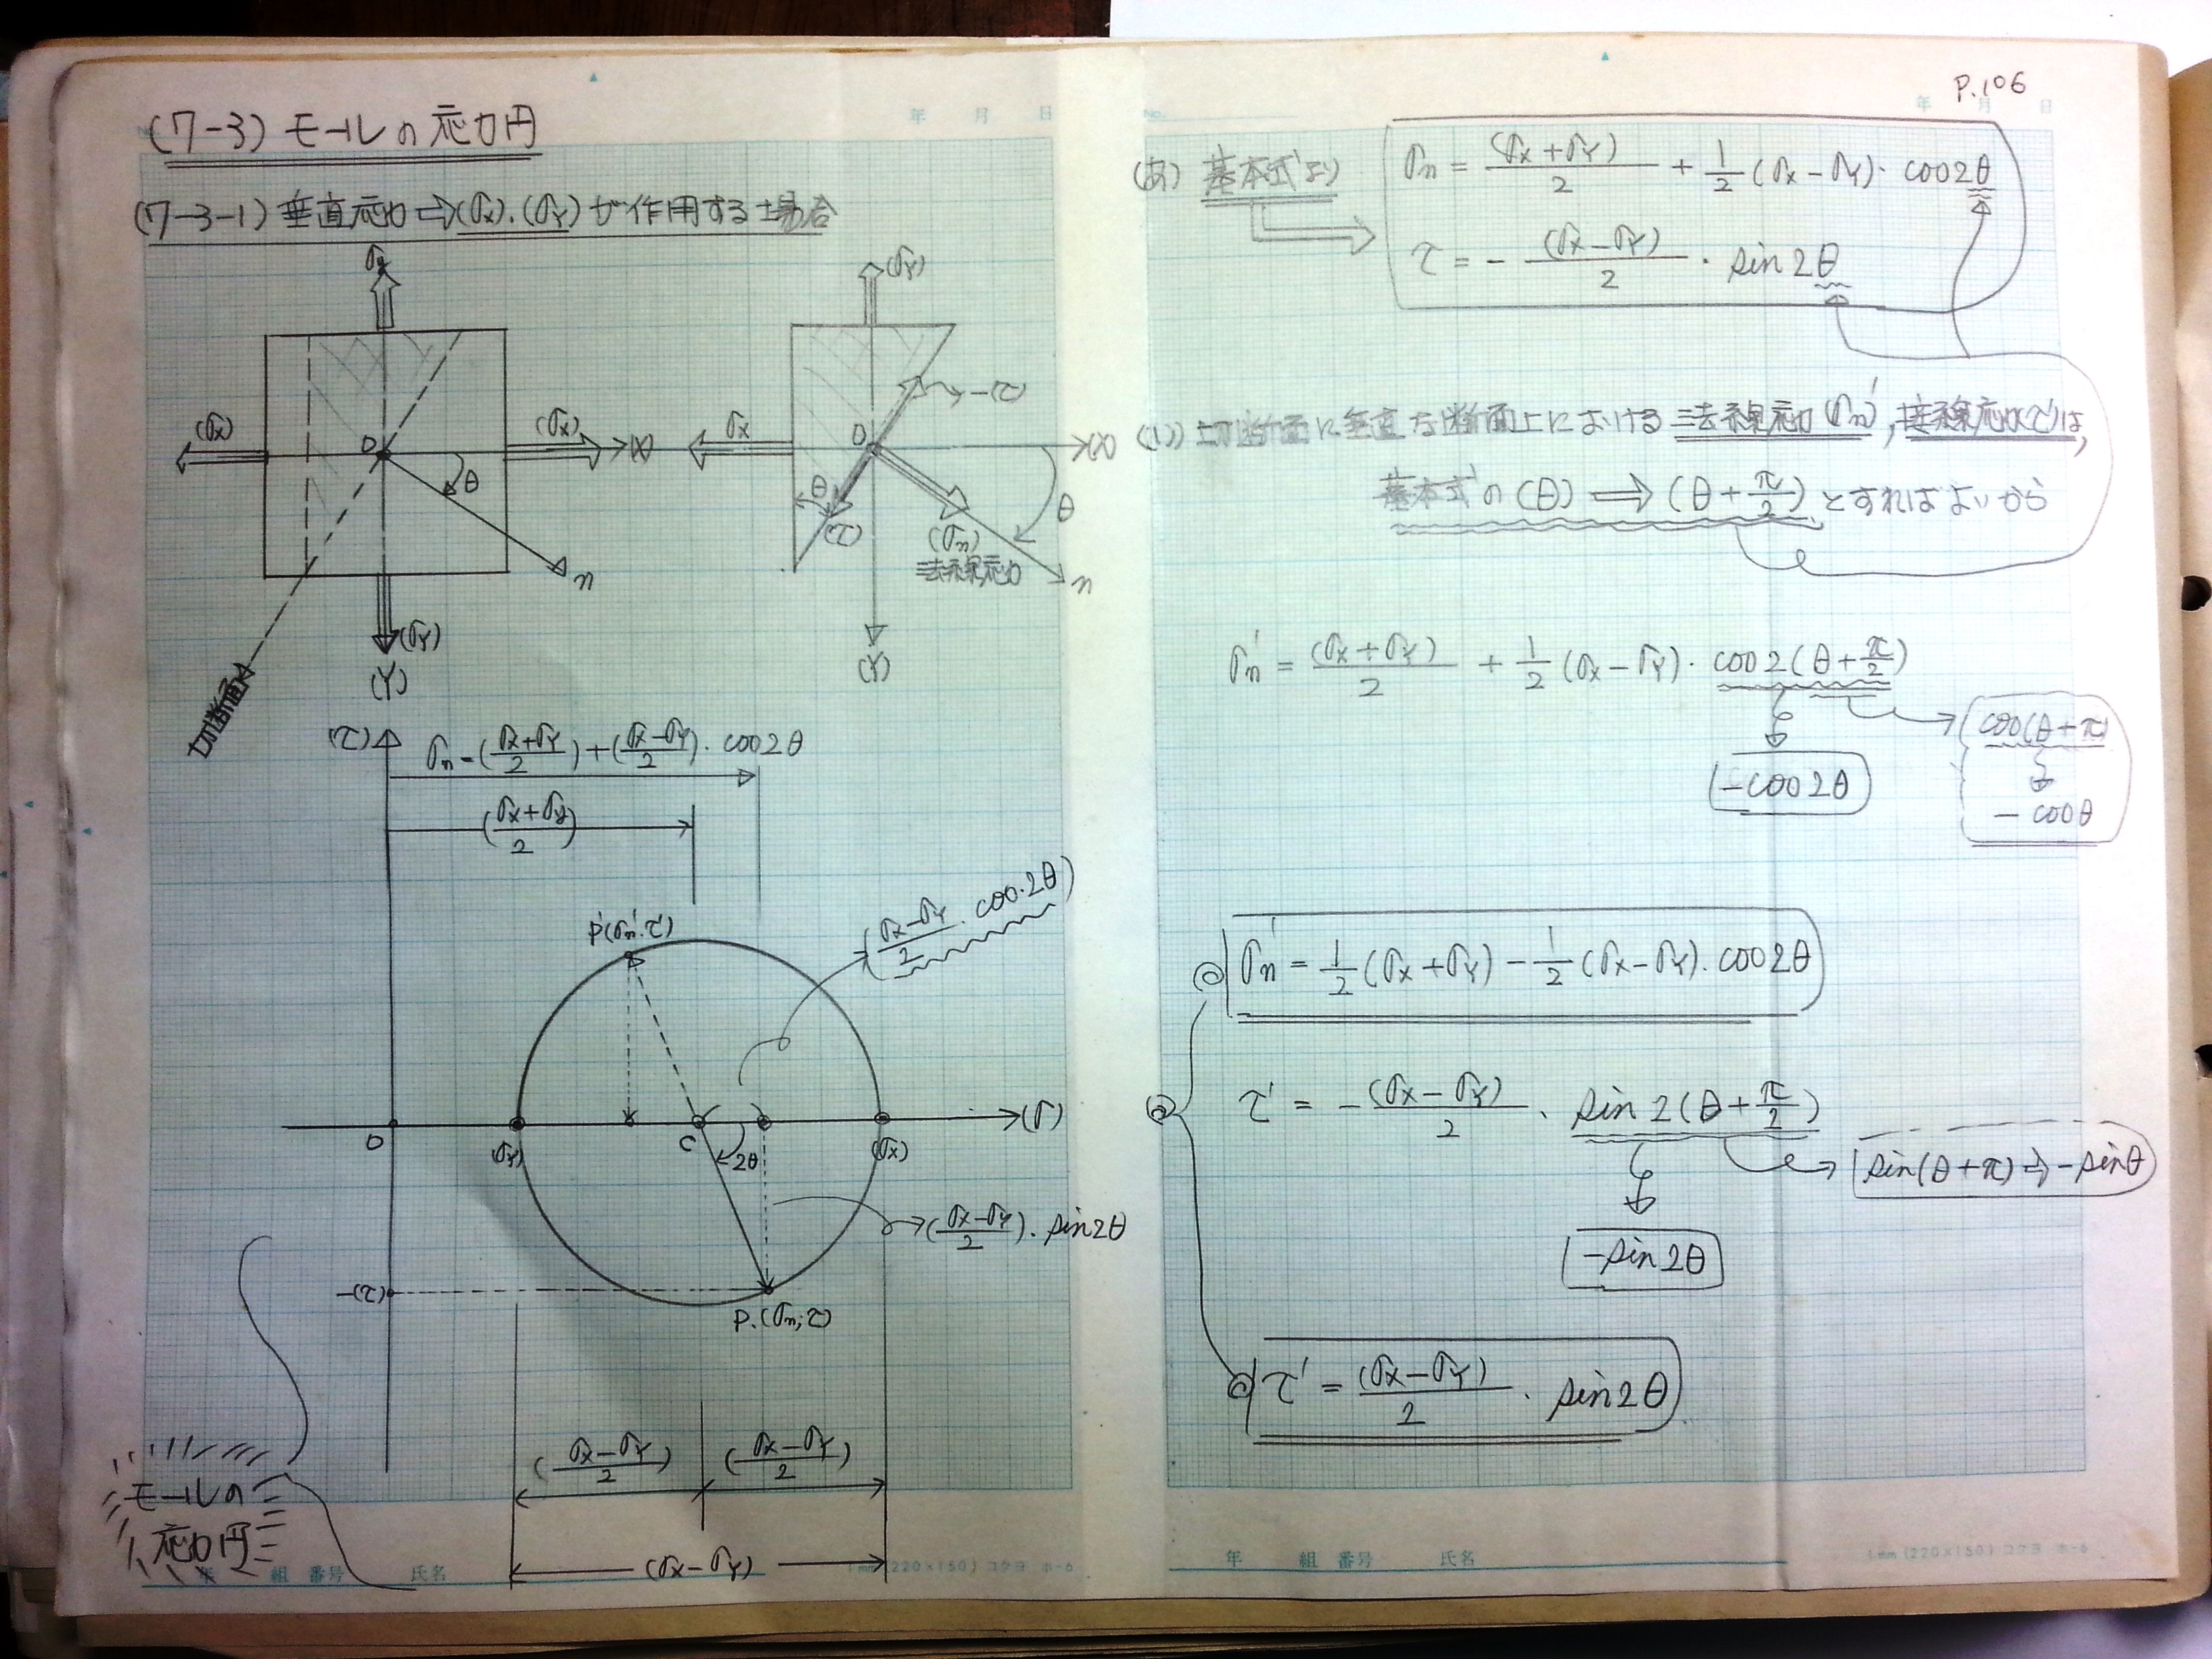 (7-3) モールの応力円
(7-3-1) 垂直応力⇒(σx).(σY)が作用する場合
σy
(σx)
(σx)
(X)
O
θ
n
(σY)
(Y)
切断面
(σY)
σx
O
-(τ)
(X)
θ
θ
(τ)
(σn)
法線応力
n
(Y)
(τ)
σn=(σx+σY/2)+(σx-σY/2)・cos2θ
(σx+σy/2)
P'(σn'.τ')
(σx-σY/2・cos・2θ)
O
(σY)
C
2θ
(σx)
(σ)
(σx-σY/2)・sin2θ
-(τ)
P.(σn,τ)
(σx-σY/2)
(σx-σY/2)
(σx-σY)
モールの
応力円
年 月 日
年 組 番号 氏名
1mm (220×150) コクヨ ホ-6
P.106
No.
年 月 日
(あ) 基本式より
σn = (σx+σY)/2 + 1/2 (σx-σY)・cos2θ
τ = - (σx-σY)/2 ・ sin2θ
(い) 切断面に垂直な断面上における法線応力(σn)', 接線応力(τ')は,
基本式の(θ)⇒(θ+π/2)とすればよいから
σn' = (σx+σY)/2 + 1/2 (σx-σY)・cos2(θ+π/2)
-cos2θ
cos(θ+π)
-cosθ
σn' = 1/2 (σx+σY) - 1/2 (σx-σY)・cos2θ
τ' = -(σx-σY)/2 ・ sin2(θ+π/2)
sin(θ+π)⇒-sinθ
-sin2θ
τ' = (σx-σY)/2 ・ sin2θ
年 組 番号 氏名
1mm (220×150) コクヨ ホ-6